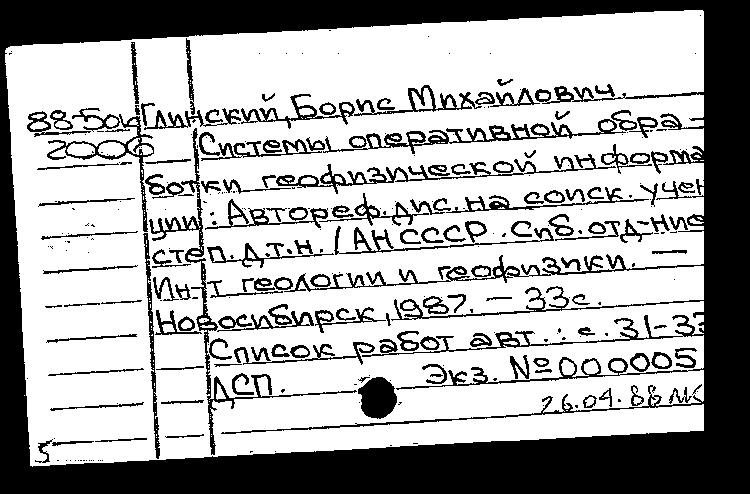 88-5оц Глинский, Борис Михайлович.
2006 Системы оперативной обра-
ботки геофизической информа
ции : Автореф.дис.на соиск. учен
степ. д.т.н. / АН СССР. Сиб. отд-ние
Ин-т геологии и геофизики. —
Новосибирск, 1987. — 33с.
Список работ авт. : с. 31-33
ДСП. Экз. №000005
26.04.88 МС
5